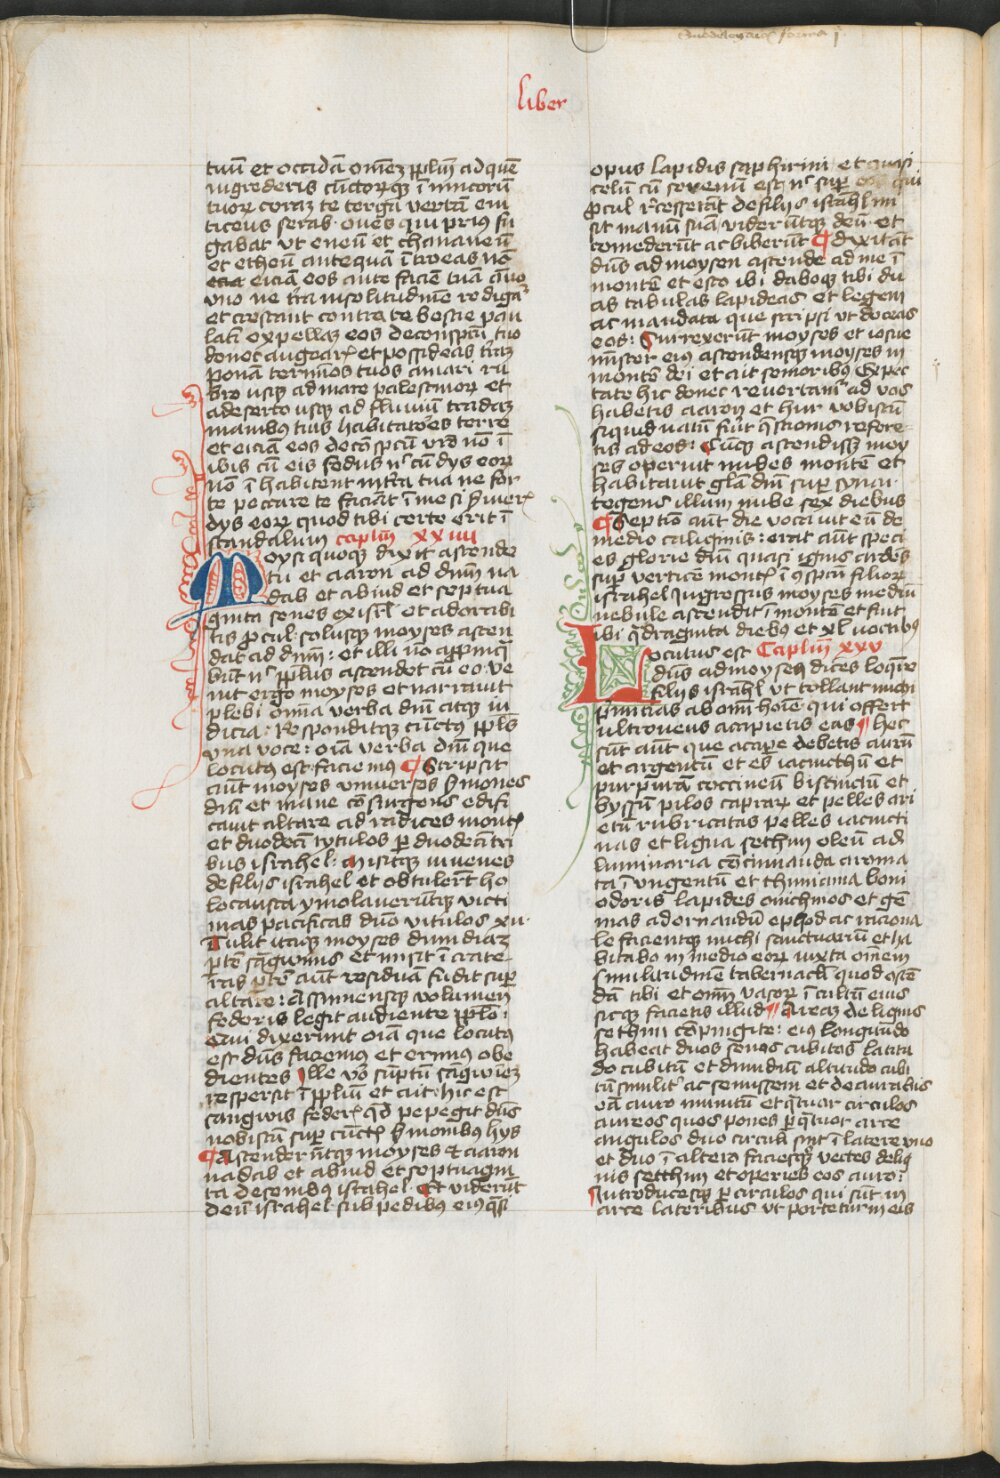 liber
tuū et occidā omēz pplm̄ ad quē
ingrederis cūctorqꝫ īimicorū
tuorꝝ coraꝫ te terga vertā em
ticens serab ones qui prius fu
gabat ut eneū et chananeū
et etheū antequā ītroeas nō
eiciā eos ante faciē tuā āno
vno ne tr̄a in solitudinē rediga
et crescant contra te bestie pau
lati expellaꝫ eos de conspctū tuo
donec augearꝭ et possideas tr̄aꝫ
ponā terminos tuos a mari ru
bro usqꝫ ad mare palestinorꝝ et
a deserto usqꝫ ad fluuiū tradaꝫ
manibꝫ tuis habitatores terre
et eiciā eos de cōspctū vrō nō ī
ibis cū eis fedus nꝭ cū dys eorꝝ
nō īhabitent in tr̄a tua ne for
te peccare te faciāt ī me si ẜuierꝭ
dys eorꝝ quod tibi certe erit ī
scandalum caplm̄ xxiiii
Moysi quoqꝫ dixit ascende
tu et aaron ad dnm̄ na
dab et abiud et septua
ginta senes ex isrl̄ et adorabi
tis procul solusqꝫ moyses ascen
dat ad dnm̄ : et illi nō appīqͣ
būt nꝭ pplus ascendet cū eo ve
nit ergo moyses et narrauit
plebi om̄a verba dnī atqꝫ iu
dicia : Responditqꝫ cūctus ppls̄
vna voce : oīa verba dnī que
locutus est faciemus ¶ Scripsit
aūt moyses vniuersos ẜmones
dnī et mane cōsurgens edifi
cauit altare ad radices montꝭ
et duodecī tytulos ꝑ duodecī tri
bus israhel : misitqꝫ iuuenes
de filijs israhel et obtulerūt ho
locausta ymolauerūtqꝫ victi
mas pacificas dn̄o vitulos xii
Tulit itaqꝫ moyses dimidiaꝫ
ꝑtē sāgwinis et misit ī crate
ras ꝑtē aūt residuā fudit suꝑ
altare : Assumensqꝫ volumen
federis legit audiente pplo :
Qui dixerunt oīa que locutus
est dn̄s faciemus et erimus obe
dientes Ille vō sūptū sāgwinez
respersit ī pplm̄ et ait : hic est
sangwis federꝭ qd̄ pepegit dn̄s
nobiscū suꝑ cūctꝭ ẜmonibus hys
¶ Ascenderūtqꝫ moyses et aaron
nadab et abiud et septuagin
ta de senibus israhel Et viderūt
deū israhel sub pedibus eius qͣsi
opus lapidis saphirini et quasi
celū cū serenū est nꝭ suꝑ eos qui
procul recesserāt de filijs israhl mi
sit manū suā viderūtqꝫ deū et
comederūt ac biberūt ¶ dixit aūt
dn̄s ad moysen ascende ad me ī
montē et esto ibi daboqꝫ tibi du
as tabulas lapideas et legem
ac mandata que scripsi ut doceas
eos : Surrexerūt moyses et iosue
mīster eius ascendensqꝫ moyses in
montē dei et ait senioribus Expec
tate hic donec reuertamꝭ ad vos
habetis aaron et hur vobiscū
siquid natū fūit qͣstionis refere
tis ad eos : Cūqꝫ ascendissꝫ moy
ses operuit nubes montē et
habitauit glā dnī suꝑ synai
tegens illum nube sex diebus
¶ Septīo aūt die vocauit eū de
medio caliginis : erat aūt speci
es glorie dnī quasi ignis ardēs
suꝑ verticē montꝭ ī ꝯspctū filiorꝝ
israhel Ingressus moyses mediū
nebule ascendit ī montē et fuit
ibi qͣdraginta diebus et xl noctibus
Locutus est Caplm̄ xxv
dn̄s ad moysen dices loqͤre
filijs israhl ut tollant michi
primitias ab omī hoīe qui offert
ultroneus accipietis eas ¶ hec
sūt aūt que accipe debetis aurū
et argentū et es iacinctū et
purpurā coccineū bistinctū et
byssū pilos caprarꝝ et pelles ari
etū rubricatas pelles iacincti
nas et ligna sethim oleū ad
luminaria cōcinnanda aroma
ta ī vngentū et thimiama boni
odoris lapides onichinos et gē
mas ad ornandū ephod ac raciona
le facientqꝫ michi sanctuariū et ha
bitabo in medio eorꝝ iuxta omēm
similitudinē tabernacli quod ostē
dā tibi et omī vasorꝝ ī cultū eius
sicqꝫ facietis illud ¶ Arcaꝫ de lignis
sethim cōpingite : eius longitudo
habeat duos semis cubitos latitu
do cubitū et dimidiū altitudo cubi
tū similitꝭ ac semissem et deaurabis
eā auro mūitū et qͣtuor circulos
aureos quos pones ꝑ qͣtuor arce
angulos duo circuli sint ī latere vno
et duo ī altero faciesqꝫ vectes de lig
nis setthim et operies eos auro :
Introducesqꝫ ꝑ circulos qui sūt in
arce lateribus ut portetur in eis